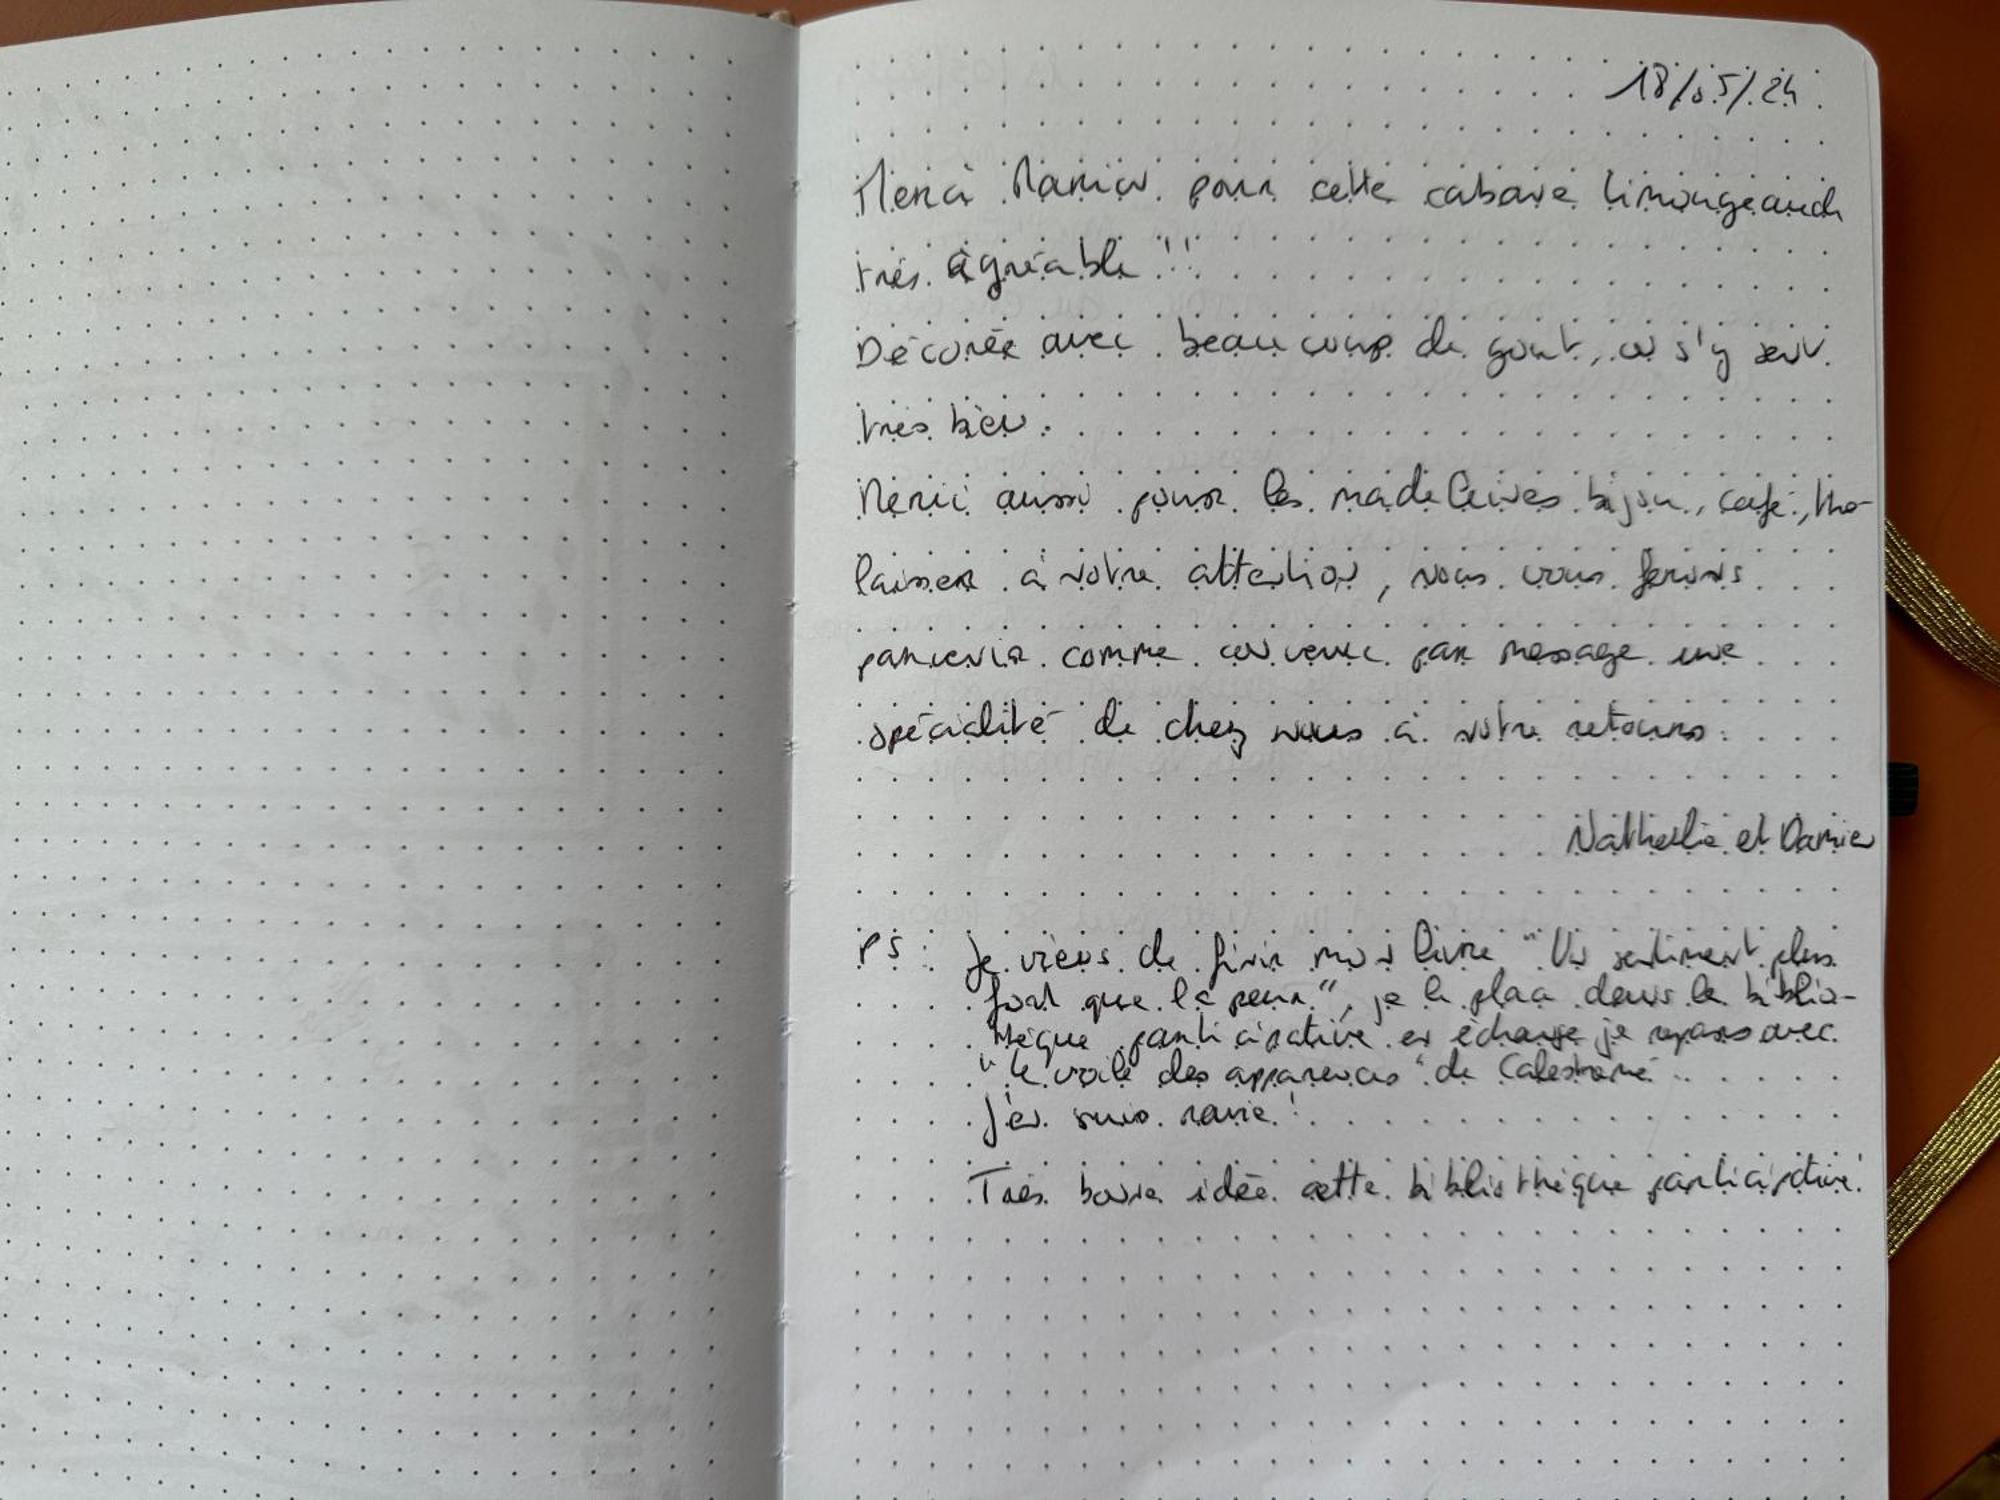 18/05/24
Merci Marion pour cette cabane limougeaude
très agréable !!
Décorée avec beaucoup de gout, on s'y sent
très bien.
Merci aussi pour les madeleines bijou, café, thé
laisser à votre attention, nous vous ferons
parvenir comme convenu par message une
spécialité de chez nous à notre retours.
Nathalie et Damien
PS : Je viens de finir mon livre "Un sentiment plus
fort que la peur", je le place dans la biblio-
thèque participative en échange je repars avec
"le voile des apparences" de Calestremé
J'en suis ravie !
Très bonne idée cette bibliothèque participative !